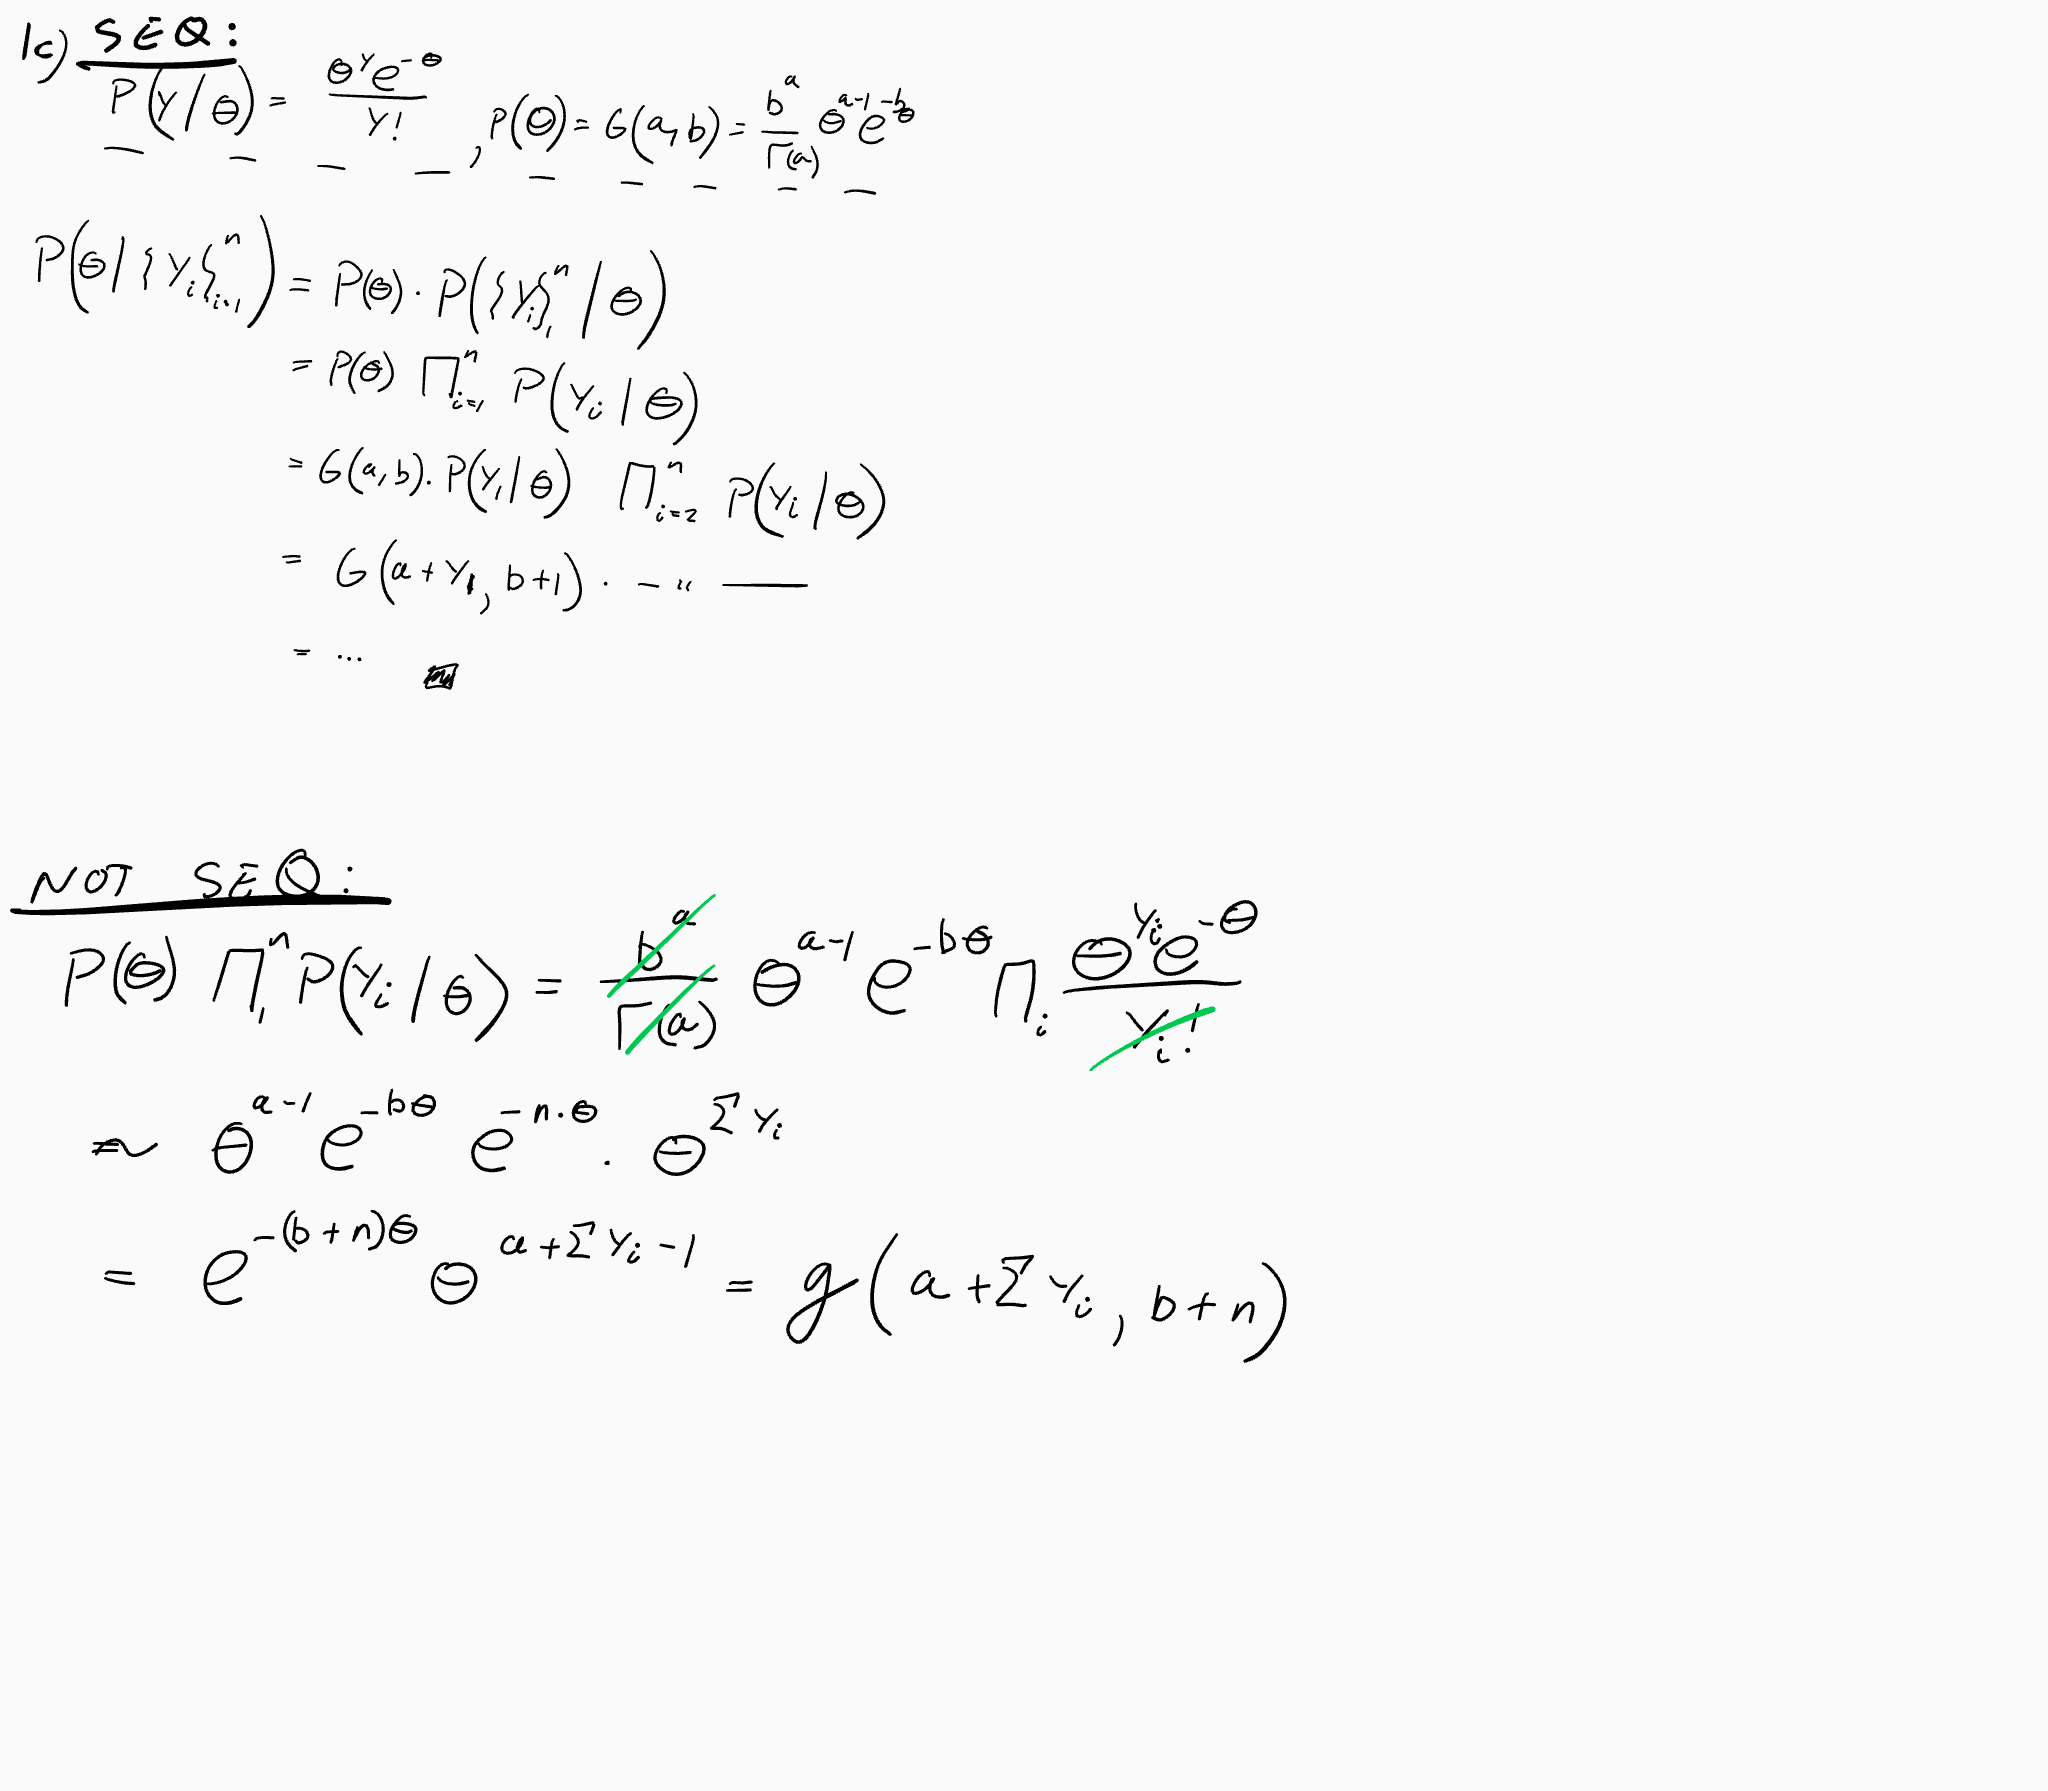 1c) SEQ:
P(Y/θ) = θ^Y e^-θ / Y! , P(θ) = G(a,b) = b^a / Γ(a) θ^a-1 e^-bθ
P(θ/{Y_i}_i=1^n) = P(θ) · P({Y_i}_1^n / θ)
= P(θ) Π_i=1^n P(Y_i / θ)
= G(a,b) · P(Y_1/θ) Π_i=2^n P(Y_i / θ)
= G(a + Y_1, b+1) · — " —
= ...
NOT SEQ:
P(θ) Π_1^n P(Y_i / θ) = b^a / Γ(a) θ^a-1 e^-bθ Π_i θ^Y_i e^-θ / Y_i!
θ^a-1 e^-bθ e^-n·θ · θ^Σ Y_i
= e^-(b+n)θ θ^a+Σ Y_i -1 = g(a + Σ Y_i, b+n)